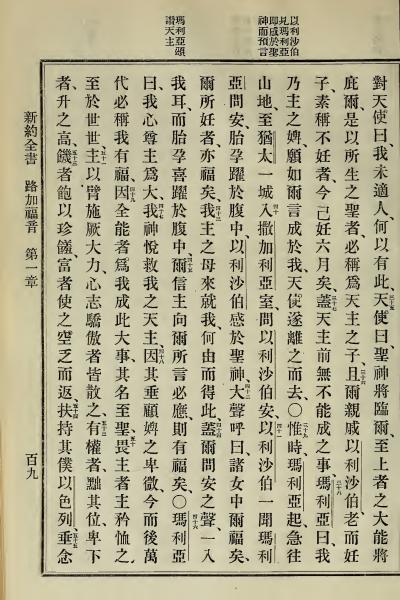 以利沙伯
見瑪利亞
即感於聖
神而預言
瑪利亞頌
讚天主
對天使曰、我未適人、何以有此、天使曰、聖神將臨爾、至上者之大能將
庇爾、是以所生之聖者、必稱爲天主之子、且爾親戚以利沙伯、老而妊
子、素稱不妊者、今已妊六月矣、蓋天主前無不能成之事、瑪利亞曰、我
乃主之婢、願如爾言成於我、天使遂離之而去、〇惟時瑪利亞起、急往
山地、至猶太一城、入撒加利亞室、問以利沙伯安、以利沙伯一聞瑪利
亞問安、胎孕躍於腹中、以利沙伯感於聖神、大聲呼曰、諸女中爾福矣、
爾所妊者、亦福矣、我主之母來就我、何由而得此、蓋爾問安之聲、一入
我耳、而胎孕喜躍於腹中、爾信主向爾所言必應、則有福矣、〇瑪利亞
曰、我心尊主爲大、我神悅救我之天主、因其垂顧婢之卑微、今而後萬
代必稱我有福、因全能者爲我成此大事、其名至聖、畏主者主矜恤之、
至於世世、主以臂施厥大力、心志驕傲者皆散之、有權者、黜其位、卑下
者升之高、饑者飽以珍饈、富者使之空乏而返、扶持其僕以色列、垂念
新約全書 路加福音 第一章 百九